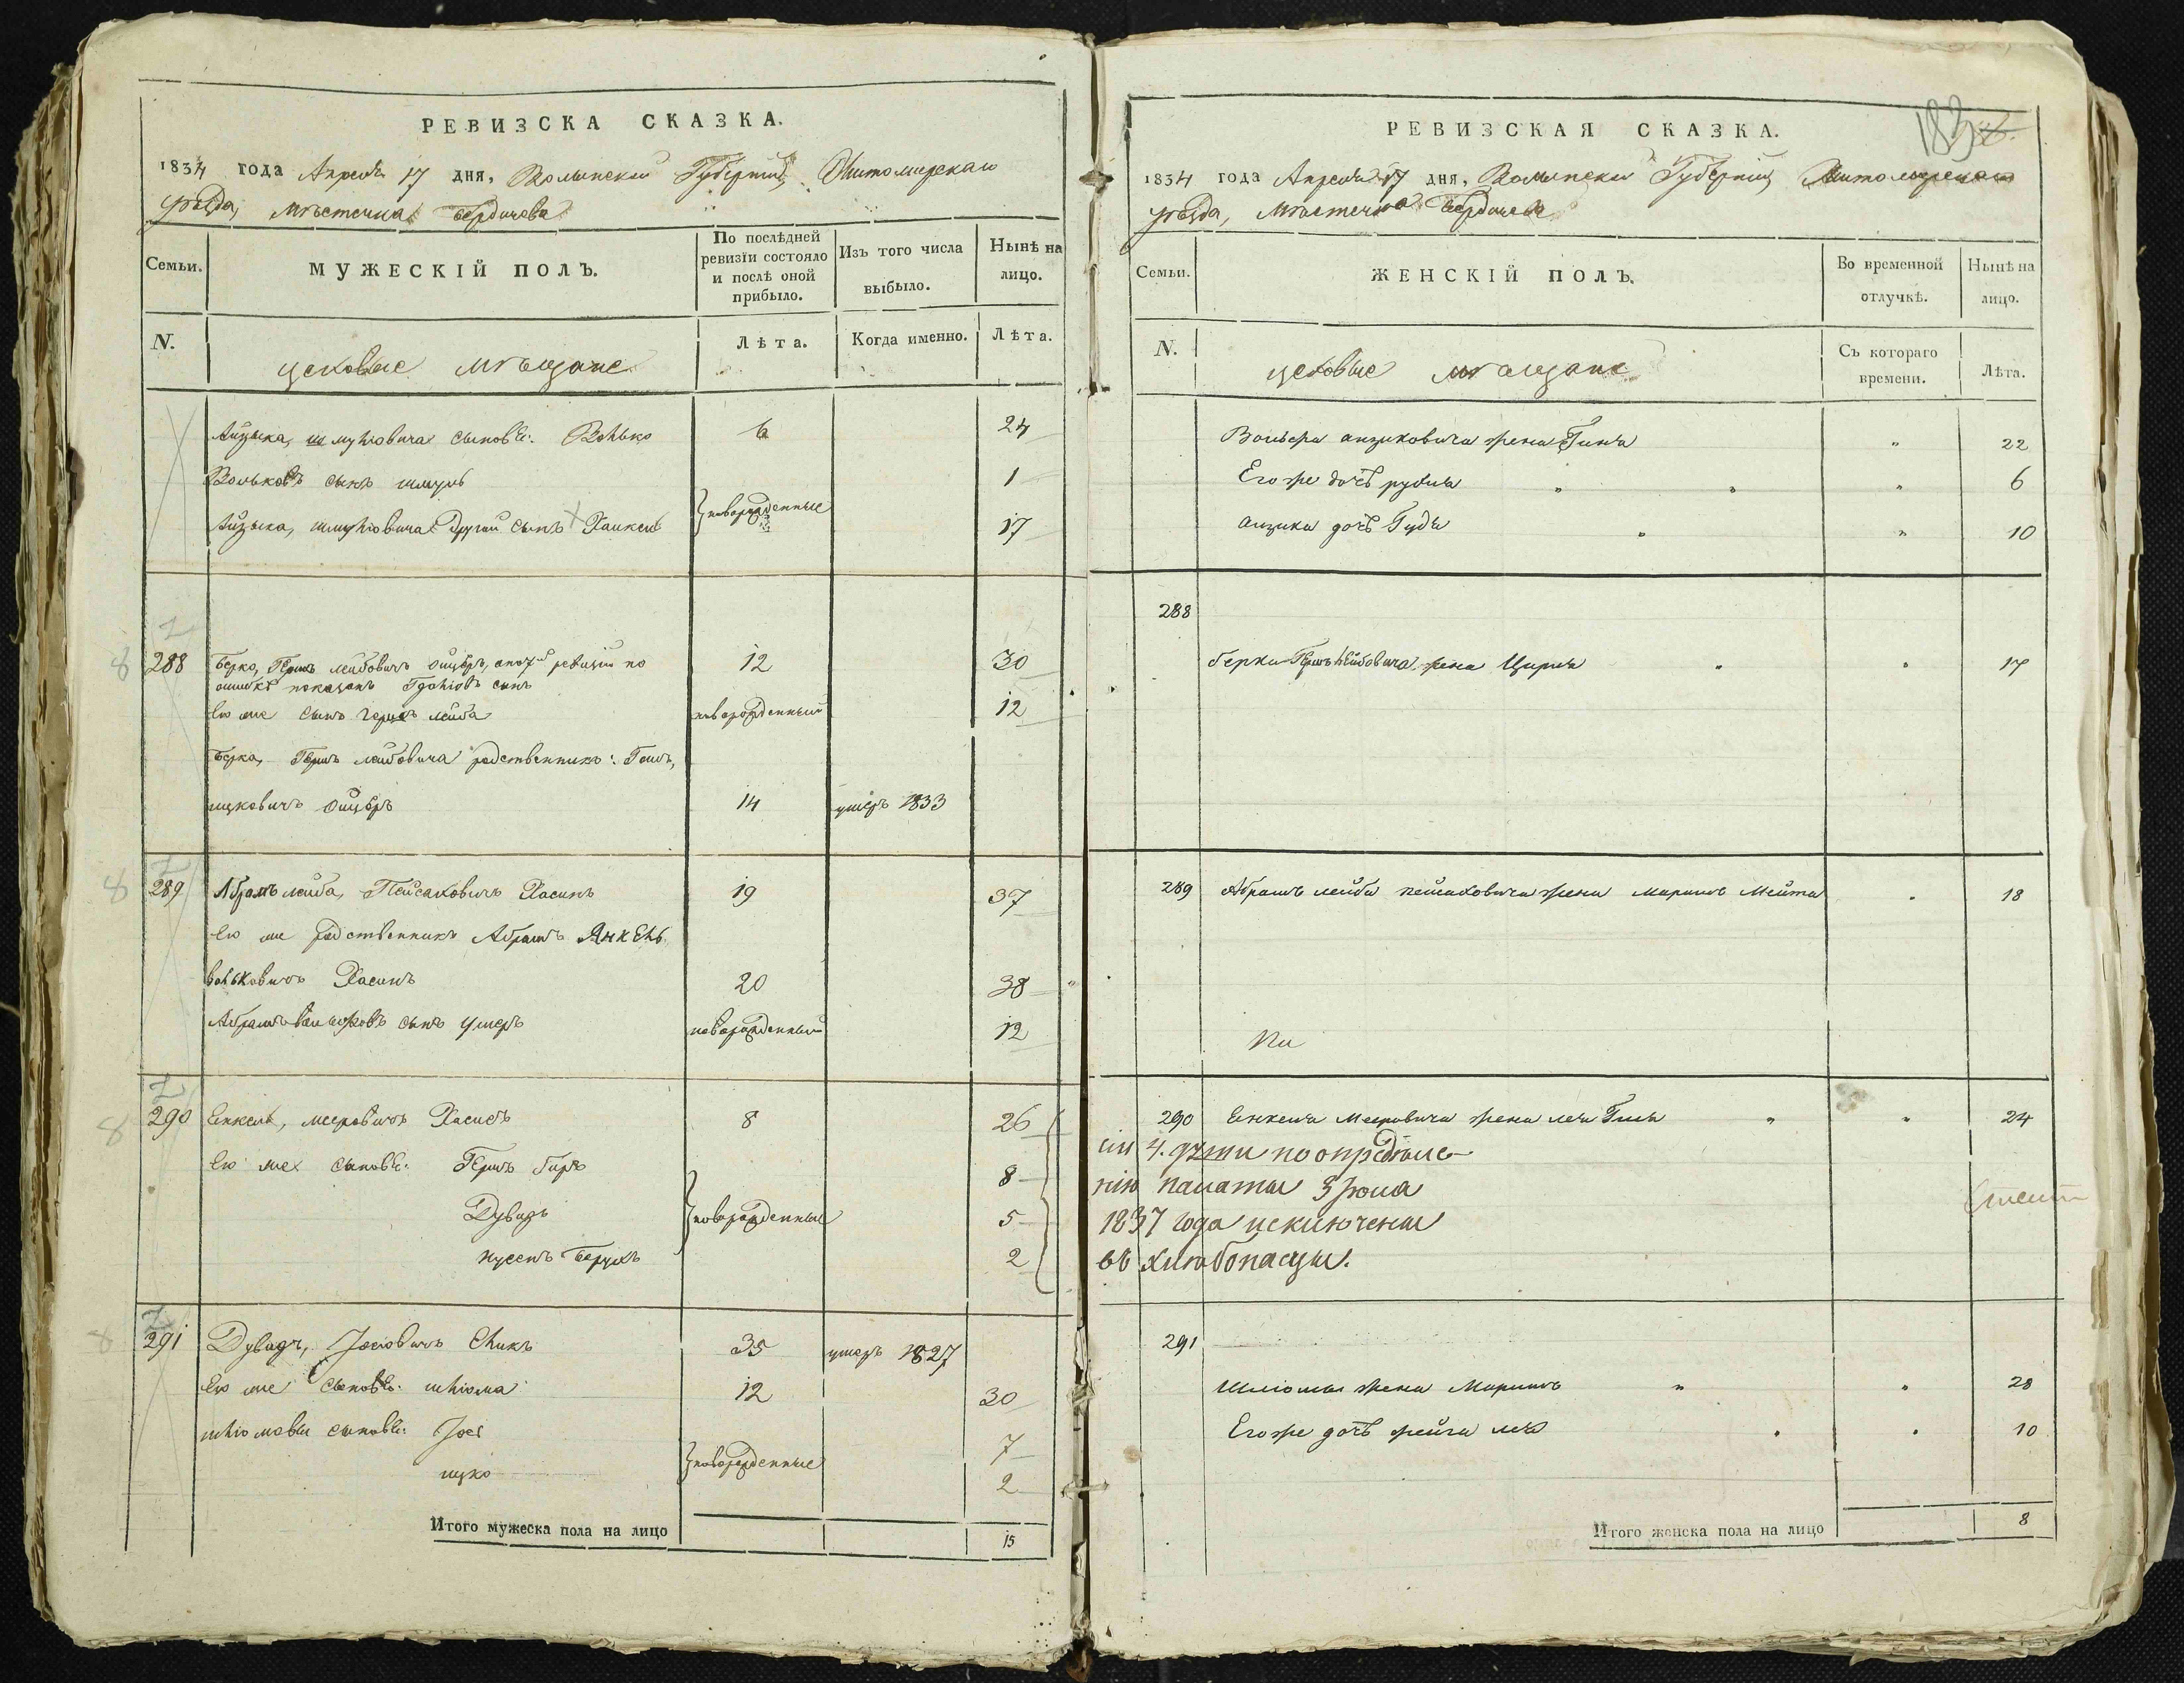 РЕВИЗСКА СКАЗКА.
1834 года Апреля 17 дня, Волынской Губерніи, Житомирскаго
уѣзда, Мѣстечка Бердичева
Семьи.
МУЖЕСКІЙ ПОЛЪ.
По послѣдней ревизіи состояло и послѣ оной прибыло.
Изъ того числа выбыло.
Нынѣ на лицо.
N.
цеховые мѣщане
Лѣта.
Когда именно.
Лѣта.
Айзыка, шмулiовича сыновѣ: Волько 6 24
Вольковъ сынъ шмуль 1
} новорожденные
Айзыка, шмулiовича другой сынъ Хаикель 17
288 Берко, Гершъ лейбовичъ ревизіи по 12 30
ошибкѣ показанъ сынъ
его же сынъ герцъ лейба новорожденный 12
Берка, Гершъ лейбовича родственникъ:
ицковичъ 14 умеръ 1833
289 Абрамъ лейба, Пейсаковичъ Хасинъ 19 37
его же родственникъ Абрамъ Янкель
вольковичъ Хасинъ 20 38
Абрамъ вольковъ сынъ умеръ новорожденный 12
290 Енкель, мееровичъ Хасисъ 8 26
его же сыновѣ: Гершъ Беръ 8
Дувидъ } новорожденные 5
нусенъ Берухъ 2
291 Дувидъ, Іосіовичъ 35 умеръ 1827
его же сыновѣ: шлiома 12 30
шлiомовы сыновѣ: Јось 7
} новорожденные
ицко 2
Итого мужеска пола на лицо 15
РЕВИЗСКАЯ СКАЗКА.
183
1834 года Апреля 17 дня, Волынской Губерніи Житомирскаго
уѣзда, Мѣстечка Бердичева
Семьи.
ЖЕНСКІЙ ПОЛЪ.
Во временной отлучкѣ.
Нынѣ на лицо.
N.
цеховые мѣщане
Съ котораго времени.
Лѣта.
Вольки айзиковича жена Гина " 22
Его же дочь рухля " " " 6
айзика дочь Гудя " " 10
288
берки Гершъ Лейбовича жена Цирля " " 17
289 Абрамъ лейби пейсаховича жена Маріимъ Мейта " 18
290 Енкеля Мееровича жена леа " " 24
сіи 4. души по опредѣле-
нію палаты 3 іюня
1837 года исключены
въ хлѣбопащцы.
291
Шліомы жена Маріимъ " " 28
Его же дочь фейга леа " " 10
Итого женска пола на лицо 8